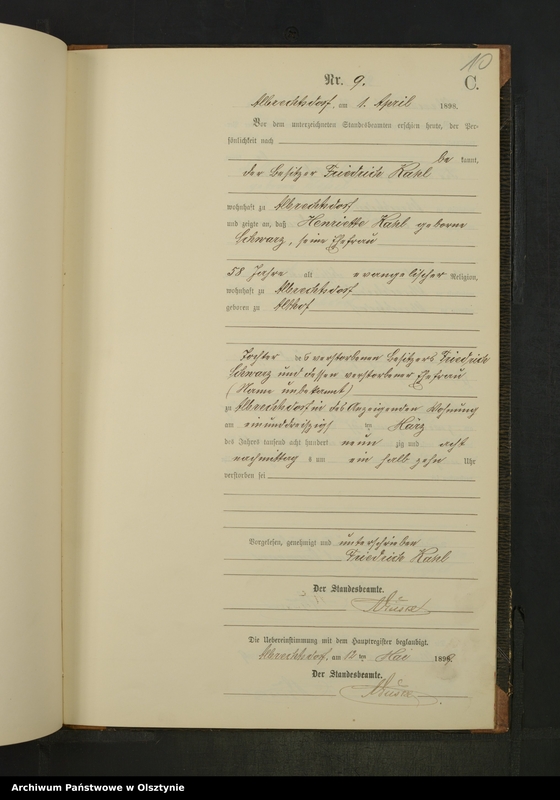 10
Nr. 9.
C.
Albrechtsdorf, am 1. April 189
Vor dem unterzeichneten Standesbeamten erschien heute, der Per-
sönlichkeit nach
be kannt,
der Besitzer Friedrich Kahl
wohnhaft zu Albrechtsdorf
und zeigte an, daß Henriette Kahl geborne
Schwarz, seine Ehefrau
58 Jahre alt evangelischer Religion,
wohnhaft zu Albrechtsdorf
geboren zu Althof
Tochter des verstorbenen Besitzers Friedrich
Schwarz und dessen verstorbener Ehefrau
(Name unbekannt)
zu Albrechtsdorf in des Anzeigenden Wohnung
am einunddreißigsten März
des Jahres tausend acht hundert neun zig und acht
nachmittags um ein halb zehn Uhr
verstorben sei
Vorgelesen, genehmigt und unterschrieben
Friedrich Kahl
Der Standesbeamte.
Die Uebereinstimmung mit dem Hauptregister beglaubigt.
Albrechtsdorf, am 12 ten Mai 189
Der Standesbeamte.
Archiwum Państwowe w Olsztynie